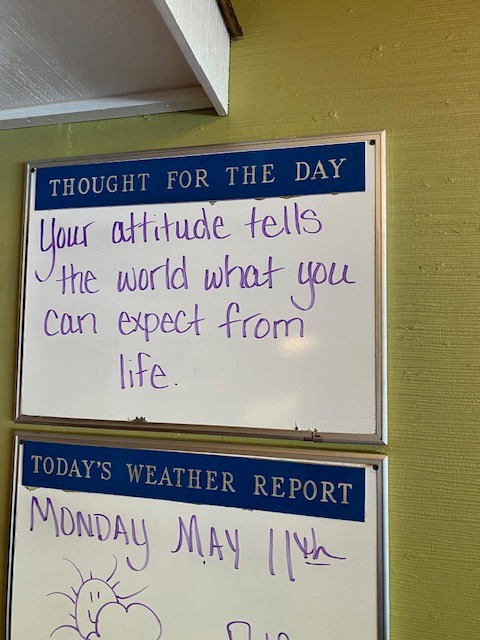 THOUGHT FOR THE DAY
Your attitude tells
the world what you
can expect from
life.
TODAY'S WEATHER REPORT
MONDAY MAY 11th